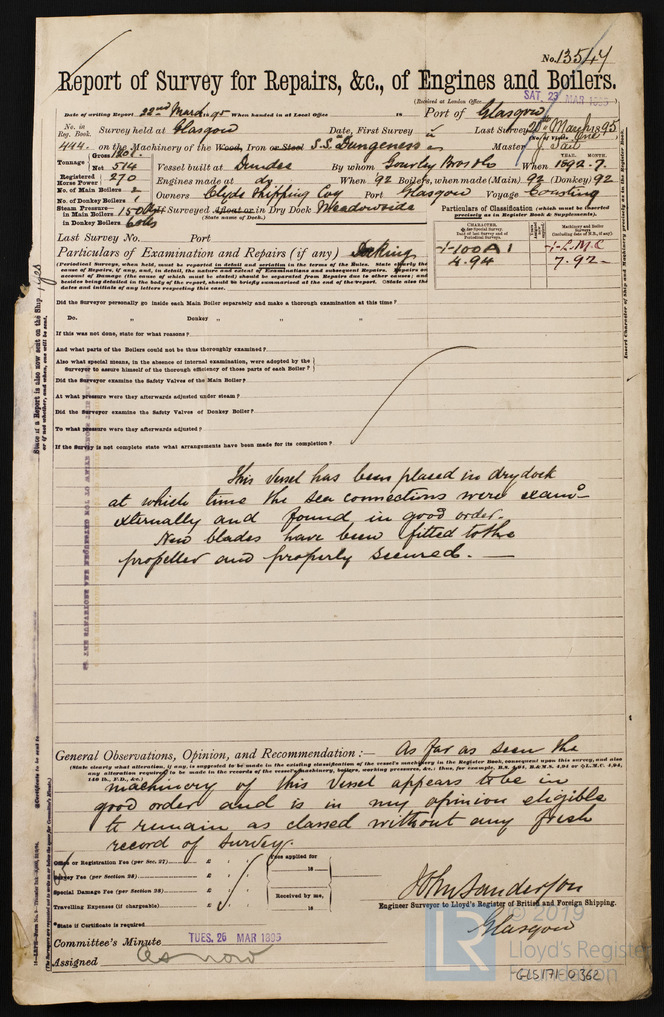 No. 13547
Report of Survey for Repairs, &c., of Engines and Boilers.
(Received at London Office SAT. 23 MAR 1895)
Date of writing Report 22nd March 1895 When handed in at Local Office 18 Port of Glasgow
No. in Reg. Book. Survey held at Glasgow Date, First Survey Last Survey 20th March 1895
444. on the Machinery of the Wood, Iron or Steel S.S. Dungeness Master J. Tait
Tonnage Gross
Net 514 Vessel built at Dundee By whom Gourlay Bros & Co When 1892-7
YEAR. MONTH.
Registered Horse Power 270 Engines made at do When 92 Boilers, when made (Main) 92 (Donkey) 92
No. of Main Boilers 2
No. of Donkey Boilers 1 Owners Clyde Shipping Coy Port Glasgow Voyage Coasting
Steam Pressure in Main Boilers 150 lbs If Surveyed Afloat or in Dry Dock Meadowside
in Donkey Boilers 60 lbs (State name of Dock.)
Last Survey No. Port
Particulars of Classification (which must be inserted precisely as in Register Book & Supplements).
CHARACTER,
Machinery and Boiler Surveys (including date of N.B., if any)
+100A1 +L.M.C
4.94 7.92
Particulars of Examination and Repairs (if any) Docking
(Periodical Surveys, when held, must be reported in detail and seriatim in the terms of the Rules. State clearly the
cause of Repairs, if any, and, in detail, the nature and extent of Examinations and subsequent Repairs. Repairs on
account of Damage (the cause of which must be stated) should be separated from Repairs due to other causes; and
besides being detailed in the body of the report, should be briefly summarised at the end of the report. State also the
dates and initials of any letters respecting this case.
Did the Surveyor personally go inside each Main Boiler separately and make a thorough examination at this time?
Do. „ Donkey „ „ „
If this was not done, state for what reasons?
And what parts of the Boilers could not be thus thoroughly examined?
Also what special means, in the absence of internal examination, were adopted by the
Surveyor to assure himself of the thorough efficiency of those parts of each Boiler?
Did the Surveyor examine the Safety Valves of the Main Boiler?
At what pressure were they afterwards adjusted under steam?
Did the Surveyor examine the Safety Valves of Donkey Boiler?
To what pressure were they afterwards adjusted?
If the Survey is not complete state what arrangements have been made for its completion?
This Vessel has been placed in dry dock
at which time the sea connections were examd
externally and found in good order.
New blades have been fitted to the
propeller and properly secured.
General Observations, Opinion, and Recommendation:— As far as seen the
(State clearly what alteration, if any, is suggested to be made in the existing classification of the vessel's machinery in the Register Book, consequent upon this survey, and also
any alteration required to be made in the records of the vessel's machinery, boilers, working pressures, &c., thus, for example, B.S. 4,94, B.&M.S. 4,94 or +L.M.C. 4,94,
140 lb., F.D., &c.)
machinery of this Vessel appears to be in
good order and is in my opinion eligible
to remain as classed without any fresh
record of survey.
Office or Registration Fee (per Sec. 27) £
Survey Fee (per Section 28) £
Special Damage Fee (per Section 28) £
Travelling Expenses (if chargeable) £
Fees applied for
18
Received by me,
18
John Sanderson
Engineer Surveyor to Lloyd's Register of British and Foreign Shipping.
Glasgow
State if Certificate is required
Committee's Minute TUES. 26 MAR 1895
Assigned As now
LR
© 2019
Lloyd's Register
Foundation
GLS171-0362
State if a Report is also now sent on the Ship
or if not whether, and when, one will be sent.
Insert Character of Ship and Machinery precisely as in the Register Book.